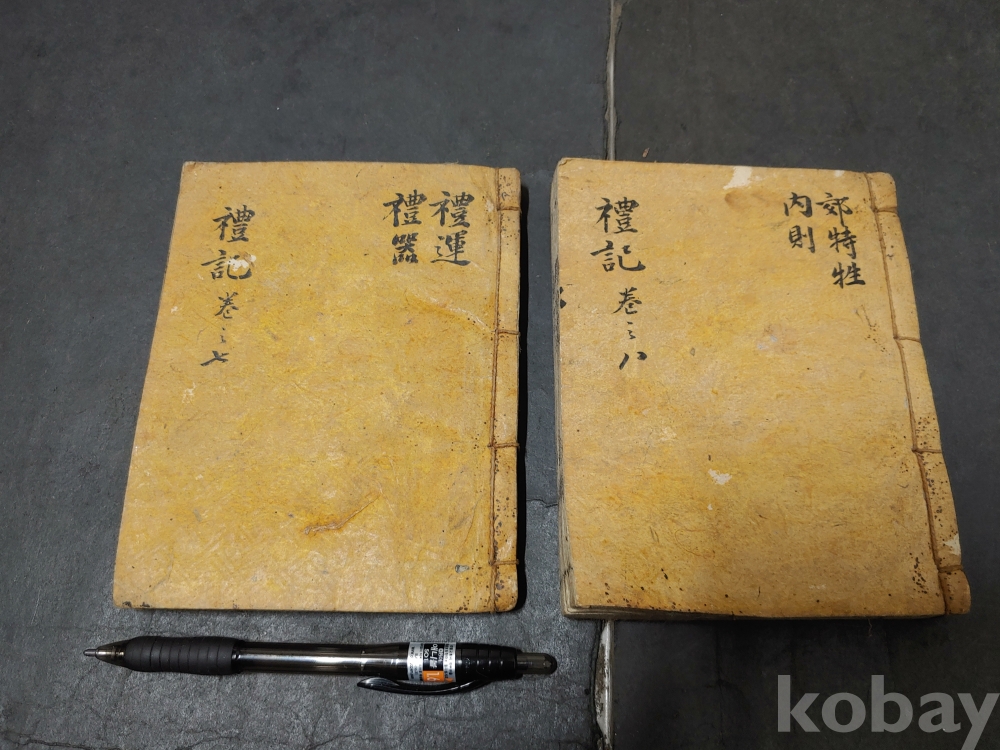 禮記 卷之七
禮運
禮器
禮記 卷之八
郊特牲
內則
kobay